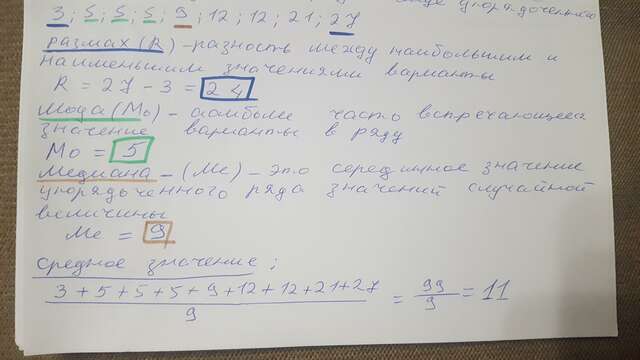 упорядоченного
3; 5; 5; 5; 9; 12; 12; 21; 27
размах (R) – разность между наибольшим и
наименьшим значениями варианты
R = 27 – 3 = 24
Мода (Mo) – наиболе часто встречающееся
значение варианты в ряду
Mo = 5
Медиана – (Me) – это серединное значение
упорядоченного ряда значений случайной
величины
Me = 9
Среднее значение;
3 + 5 + 5 + 5 + 9 + 12 + 12 + 21 + 27 / 9 = 99 / 9 = 11